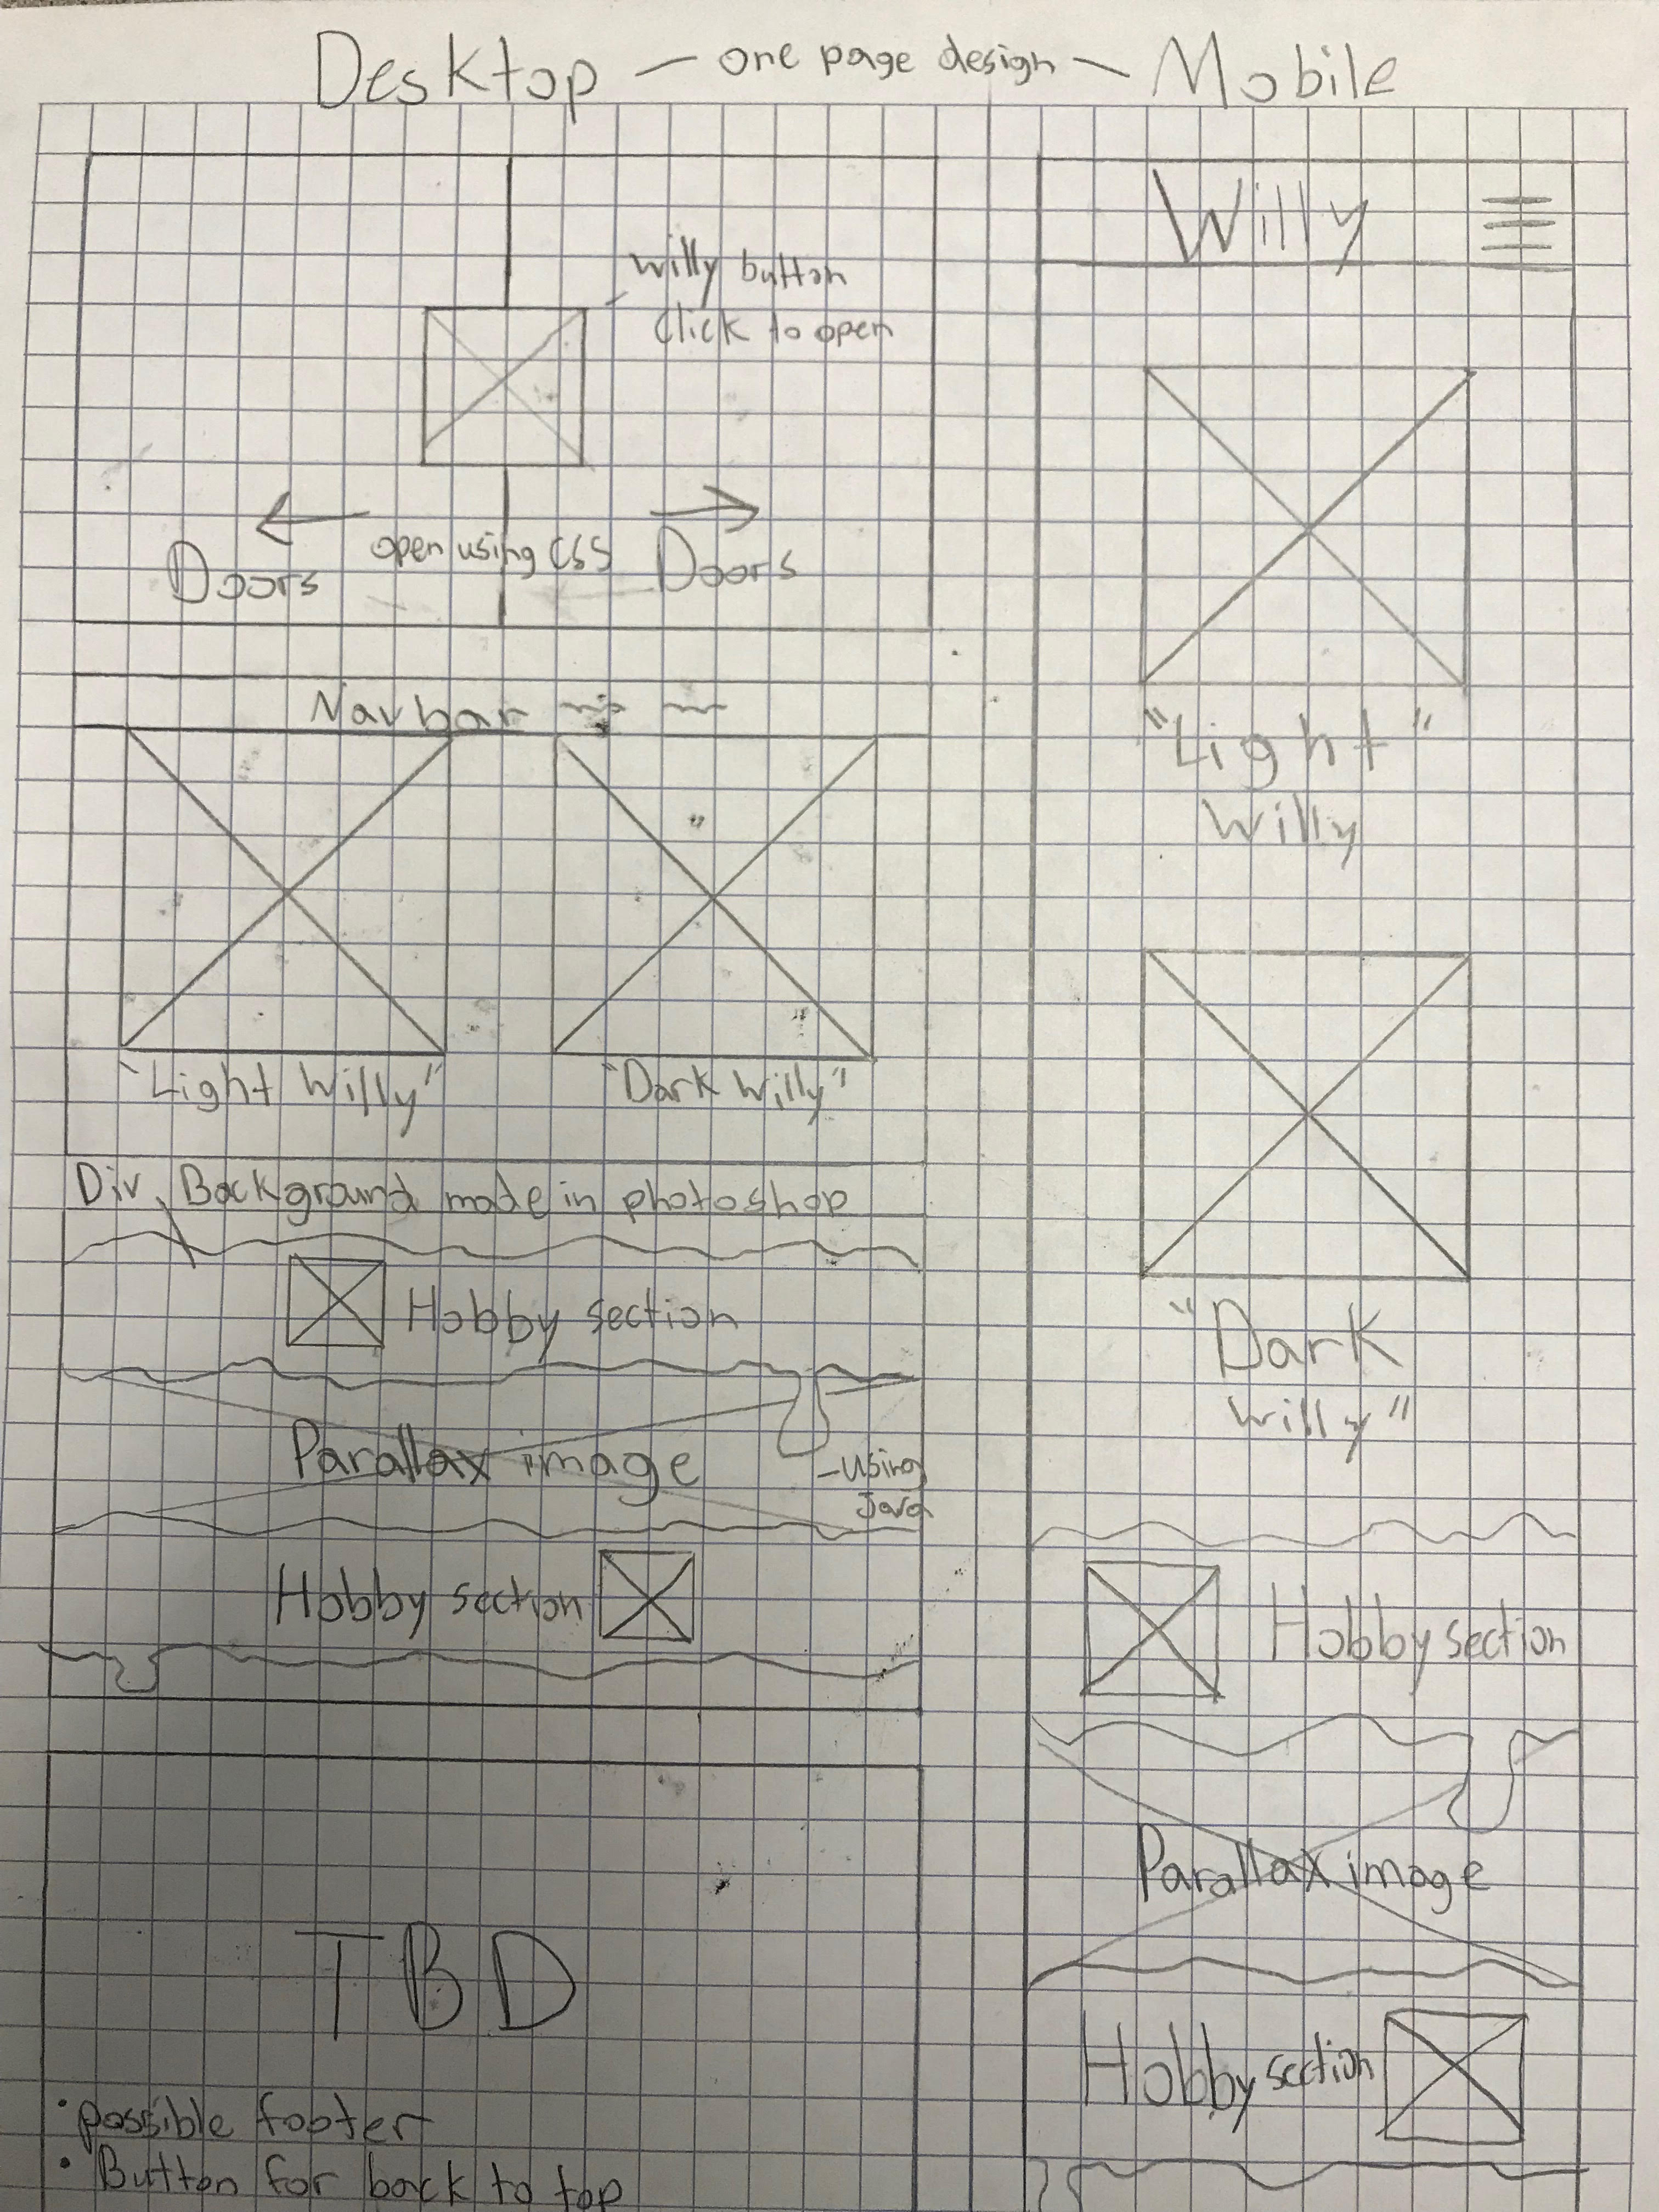 Desktop — one page design — Mobile
willy button
Click to open
Doors open using CSS Doors
Navbar
"Light Willy" "Dark Willy"
Div, Background made in photoshop
Hobby section
Parallax image
-using
Java
Hobby section
TBD
• possible footer
• Button for back to top
Willy
"Light"
Willy
"Dark
Willy"
Hobby section
Parallax image
Hobby section